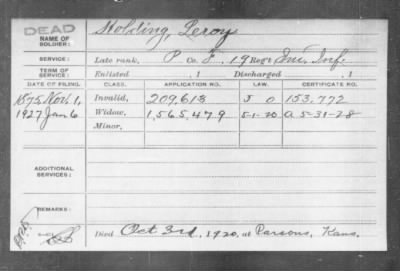 DEAD
NAME OF SOLDIER: Holding, Leroy
SERVICE: Late rank, P Co. F, 19 Reg't Ind. Inf.
TERM OF SERVICE: Enlisted , 1 Discharged , 1
DATE OF FILING. CLASS. APPLICATION NO. LAW. CERTIFICATE NO.
1875 Nov. 1, Invalid, 209,618 J O 153,772
1927 Jan 6 Widow, 1,565,479 5-1-20 A. 5-31-28
Minor,
ADDITIONAL SERVICES:
REMARKS:
Died Oct 3rd, 1920, at Parsons, Kans.